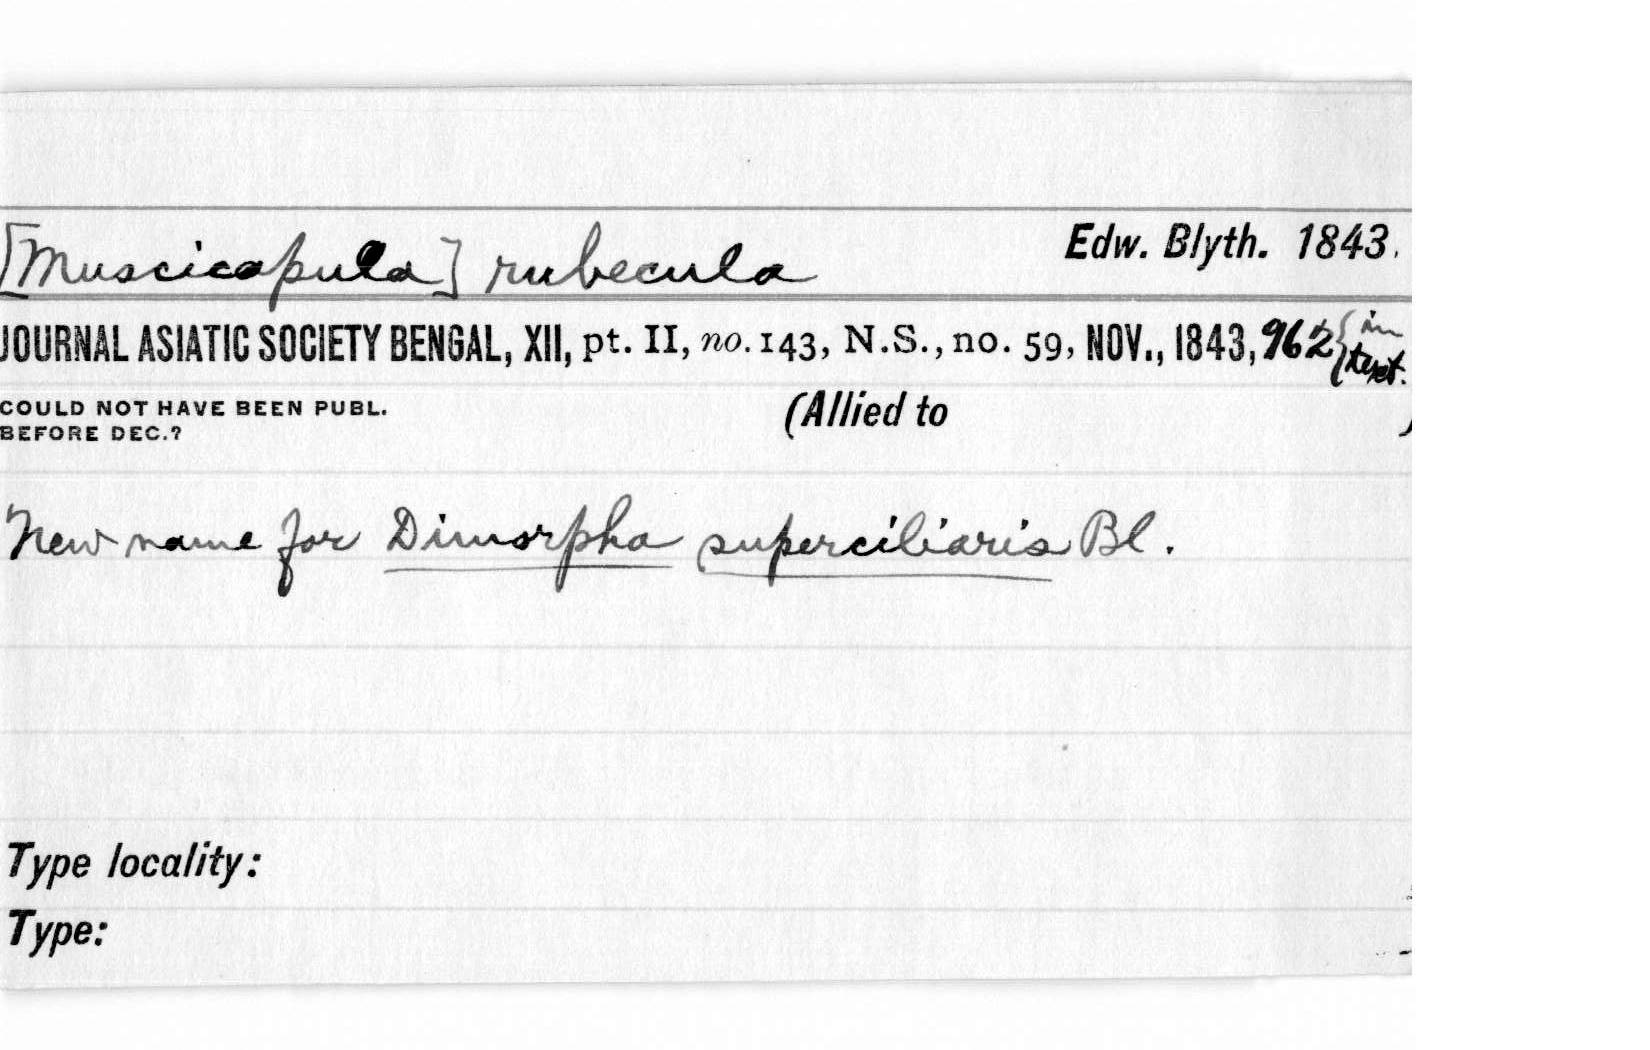 [Muscicapula] rubecula Edw. Blyth. 1843.
JOURNAL ASIATIC SOCIETY BENGAL, XII, pt. II, no. 143, N.S., no. 59, NOV., 1843, 962 { in text.
COULD NOT HAVE BEEN PUBL. (Allied to )
BEFORE DEC.?
New name for Dimorpha superciliaris Bl.
Type locality:
Type: